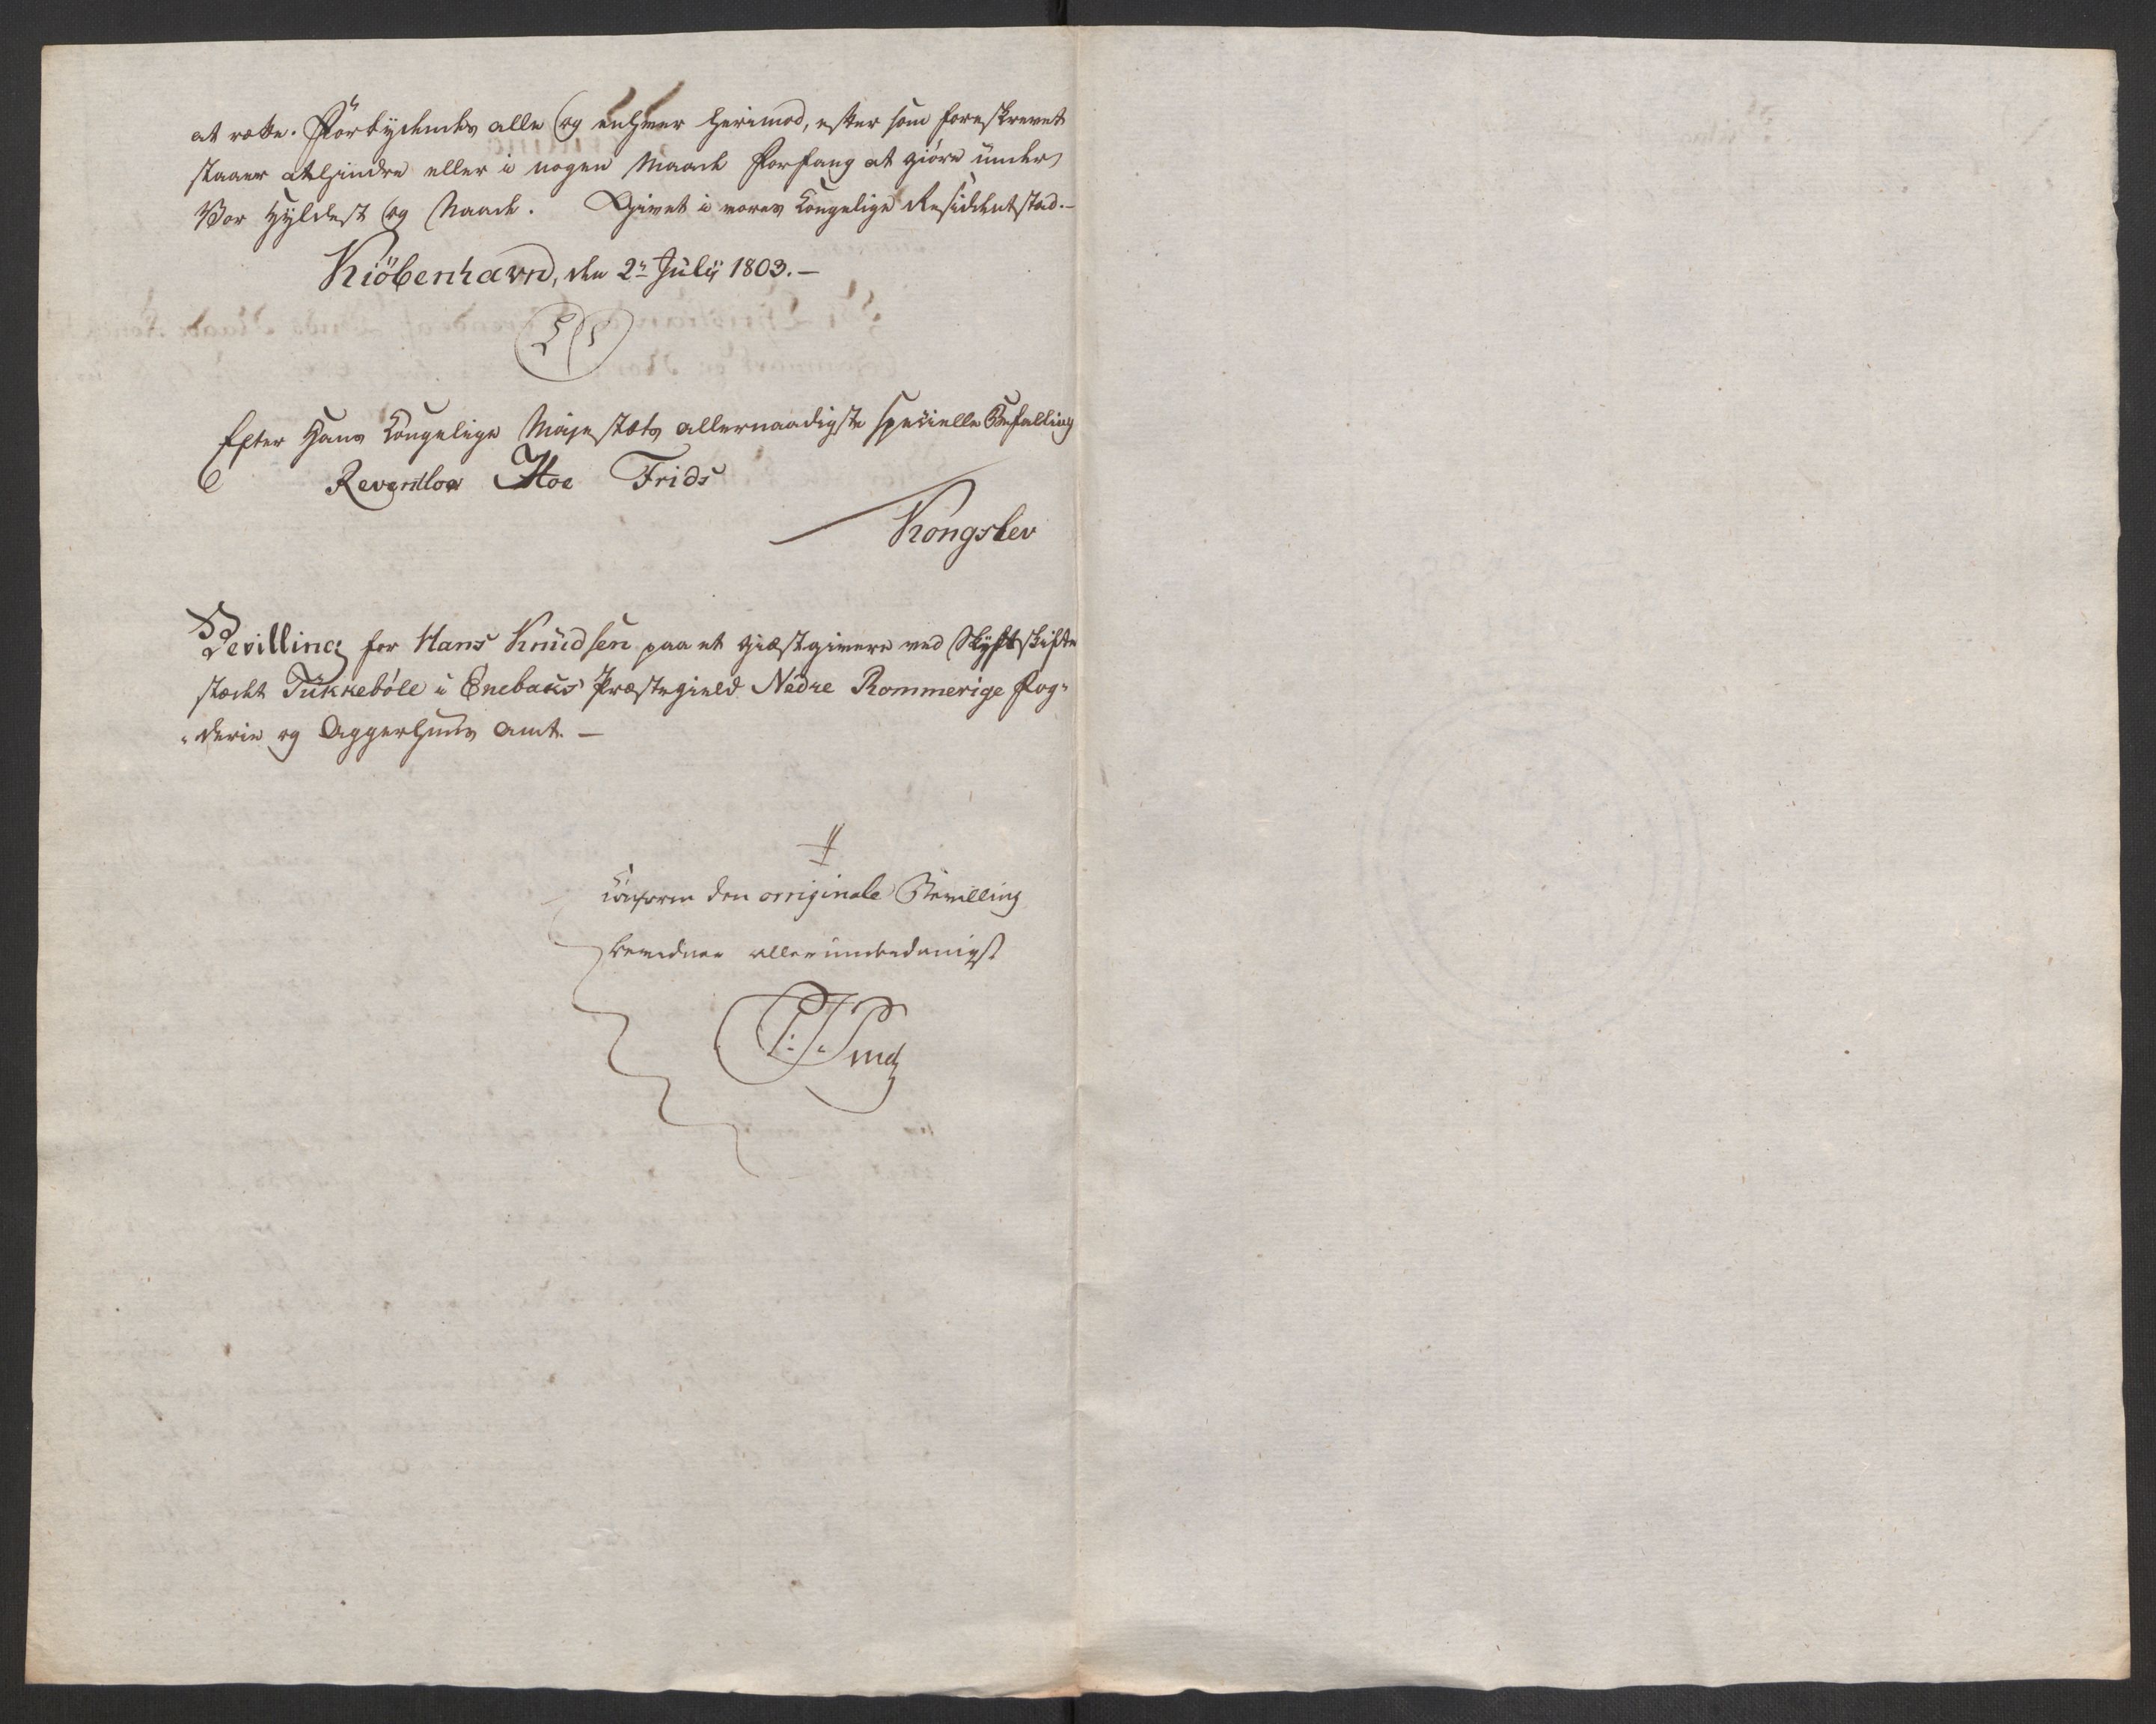 at rette. Forbydendes alle og enhver herimod, efter som foreskrevet
staaer at hindre eller i nogen Maade Forfang at giöre under
Vor Hyldest og Naade. Givet i vores Kongelige Residentstad.–
Kiöbenhavn, den 2n July 1803.–
L S
Efter Hans Kongelige Majestæts allernaadigste specielle Befalling
Reventlow Hoe Frids
Kongslev
Bevilling for Hans Knudsen paa et giæstgiverie ved Skydsskifte
stædet Tukkeböle i Enebaks Præstegield Nedre Rommerige Fog-
-derie og Aggerhuus Amt. –
Conform den orriginale Bevilling
bevidner allerunderdanigst